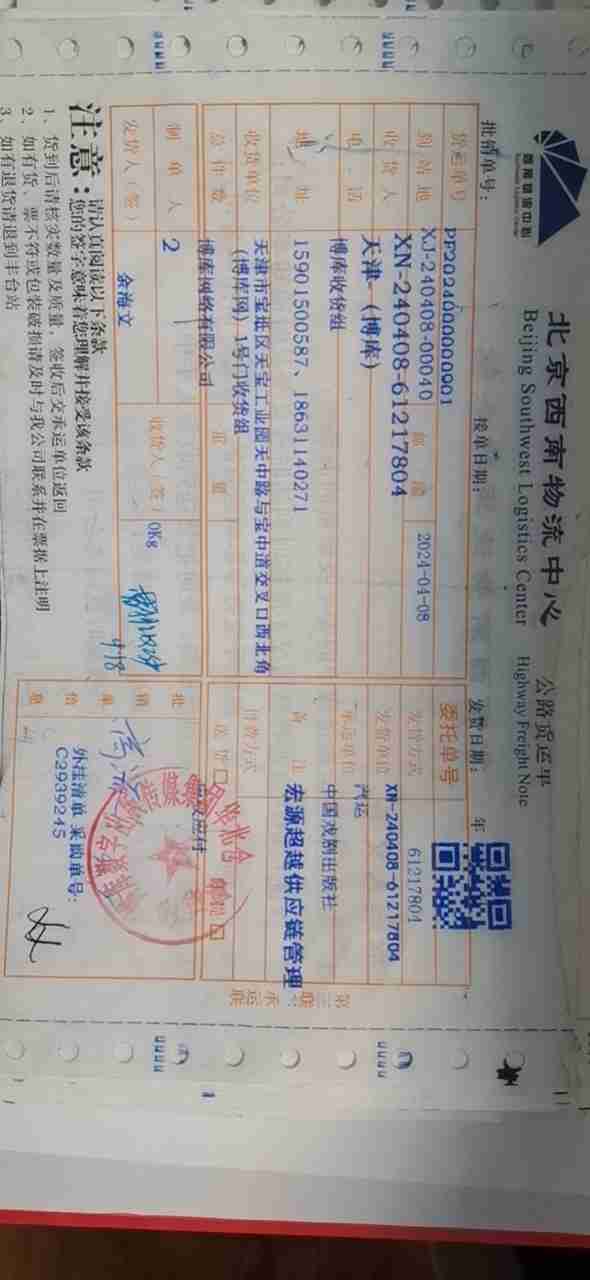 西南物流中心
北京西南物流中心
公路货运单
Beijing Southwest Logistics Center
Highway Freight Note
批清单号:
接单日期:
发货日期:
年
PP2024000000001
货运单号
XJ-240408-00040
委托单号
61217804
到站地
XN-240408-61217804
2024-04-08
发货方式
XN-240408-61217804
收货人
天津 (博库)
发货单位
汽运
电话
博库收货组
承运单位
中国戏剧出版社
地址
15901500587、18631140271
备注
宏源超越供应链管理
收货单位
天津市宝坻区天宝工业园天中路与宝中道交叉口西北角
(博库网) 1号门收货组
付费方式
总件数
博库网络有限公司
重量
送货
制单人
2
0Kg
发货人(签)
余海文
收货人(签)
4/18
批销单信息
外挂清单 采购单号:
C2939245
第三联:承运联
注意:
请认真阅读以下条款
您的签字意味着您理解并接受该条款
1、货到后请核实数量及质量,签收后交承运单位返回
2、如有货、票不符或包装破损请及时与我公司联系并在票据上注明
3、如有退货请退到丰台站